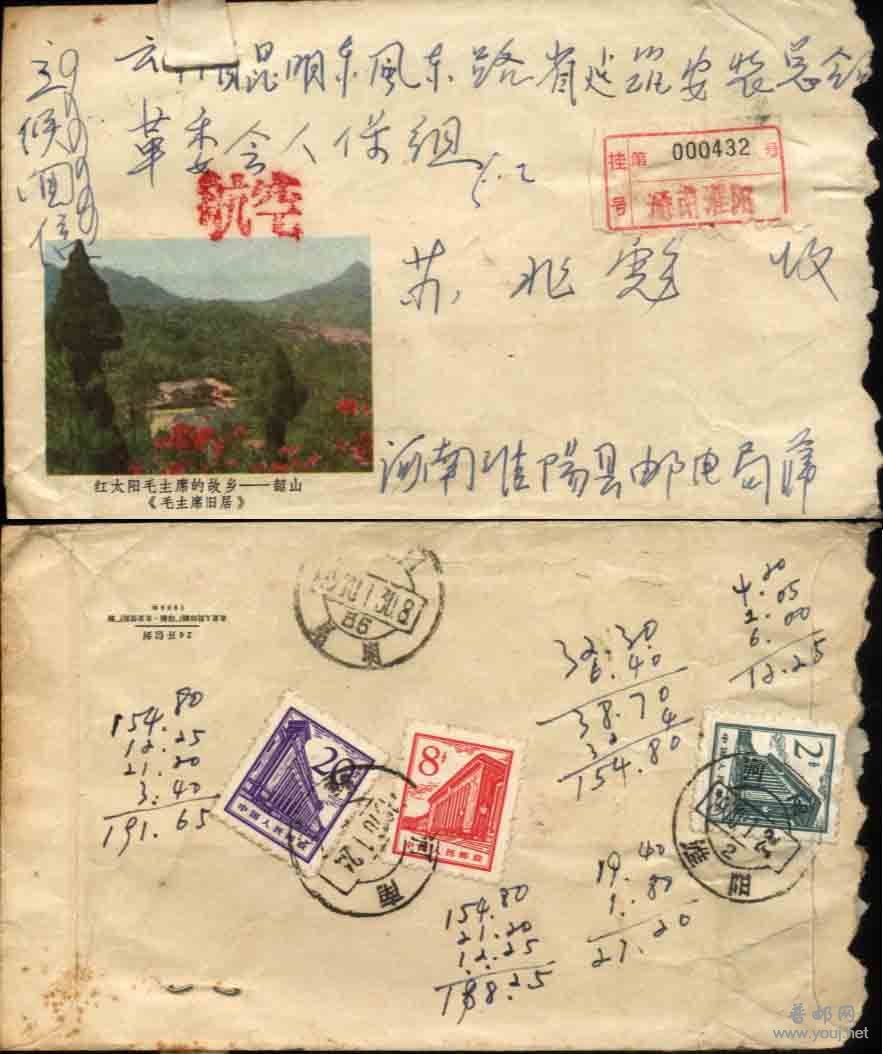 立候回信
云南省昆明东風东路省建筑安装总
革委会人保组
航空
挂号 第 000432 号
河南淮阳
苏兆 收
红太阳毛主席的故乡——韶山
《毛主席旧居》
河南淮陽县邮电局
24开信封
154.80
12.25
21.20
3.40
191.65
20
中国人民邮政
8分
中国人民邮政
2分
32.30
6.40
38.70
4
154.80
4.20
2.05
6.00
12.25
154.80
21.20
12.25
188.25
19.40
1.80
21.20
河南
淮阳
普邮网
www.youj.net